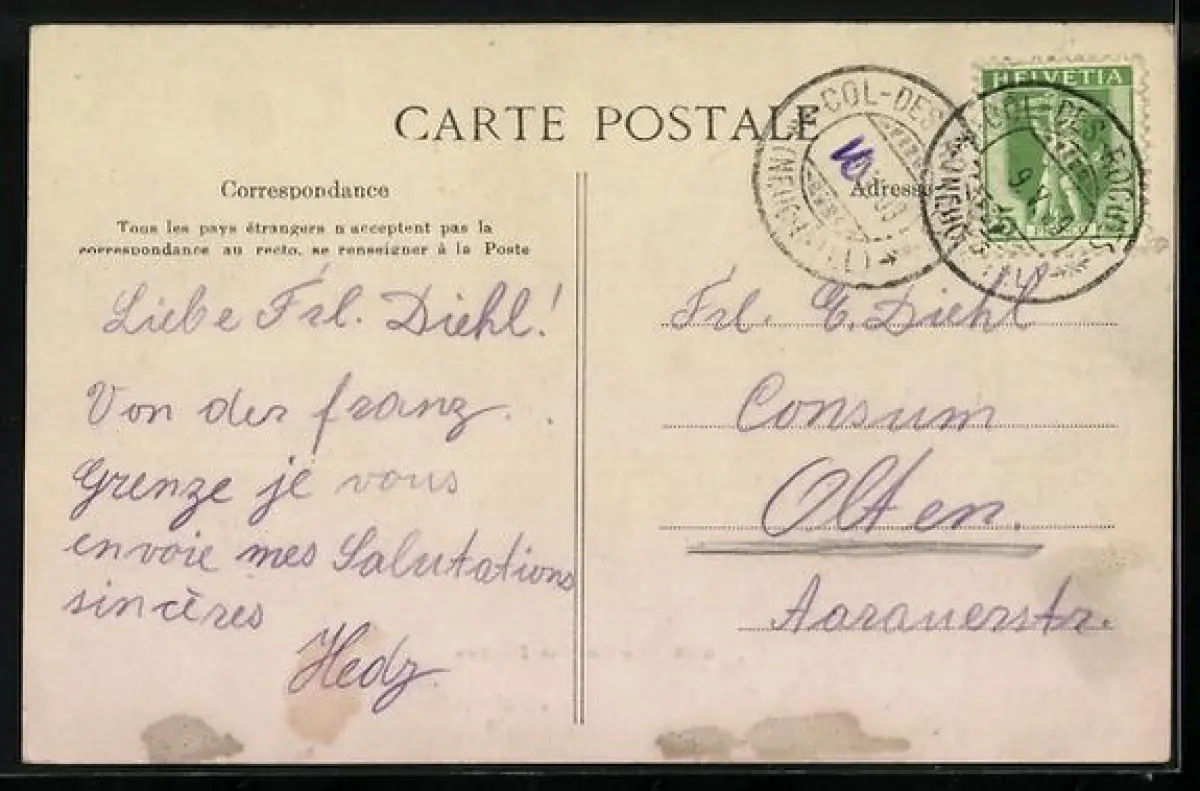 CARTE POSTALE
Correspondance
Tous les pays étrangers n'acceptent pas la
correspondance au recto, se renseigner à la Poste
Liebe Frl. Diehl!
Von der franz.
Grenze je vous
envoie mes Salutations
sincères
Hedy
Adresse
HELVETIA
COL-DES-
COL-DES-ROCHES
Frl. E. Diehl
Consum
Olten.
Aarauerstr.